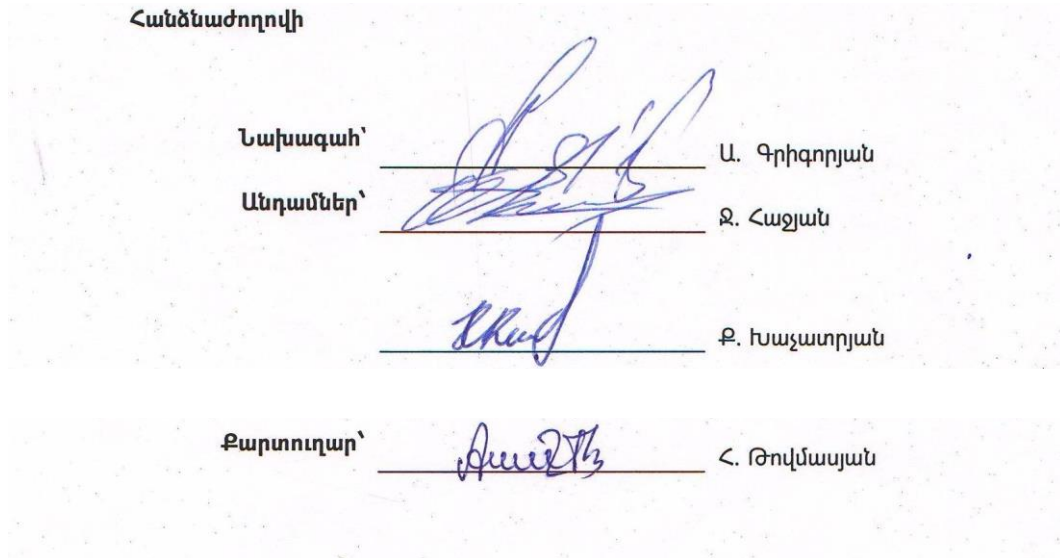 Հանձնաժողովի
Նախագահ՝ Ա. Գրիգորյան
Անդամներ՝ Ջ. Հաջյան
Ք. Խաչատրյան
Քարտուղար՝ Հ. Թովմասյան